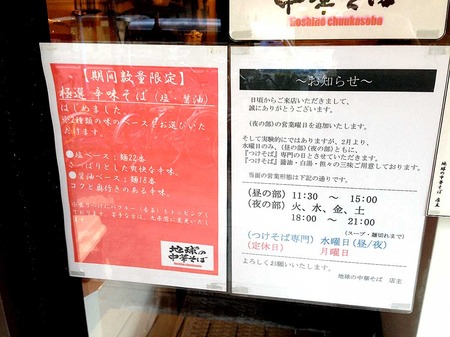 中華そば
Hoshino chuukasoba
【期間数量限定】
極選 辛味そば(塩・醤油)
はじめました
2種類の味のベースをお選びいた
だけます。
●塩ベース:麺22番
さっぱりとした爽快な辛味。
●醤油ベース:麺18番
コクと奥行きのある辛味。
地球の
中華そば
~お知らせ~
日頃からご来店いただきまして、
誠にありがとうございます。
(夜の部)の営業曜日を追加いたします。
そして実験的にではありますが、2月より、
水曜日のみ、(昼の部)(夜の部)ともに、
『つけそば』専門の日とさせていただきます。
『つけそば』醤油・白湯・煮干の三味ご用意しております。
当面の営業形態は下記の通りです。
(昼の部) 11:30 ~ 15:00
(夜の部) 火、水、金、土
18:00 ~ 21:00
(スープ・麺切れまで)
(つけそば専門) 水曜日(昼/夜)
(定休日) 月曜日
よろしくお願いいたします。
地球の中華そば 店主